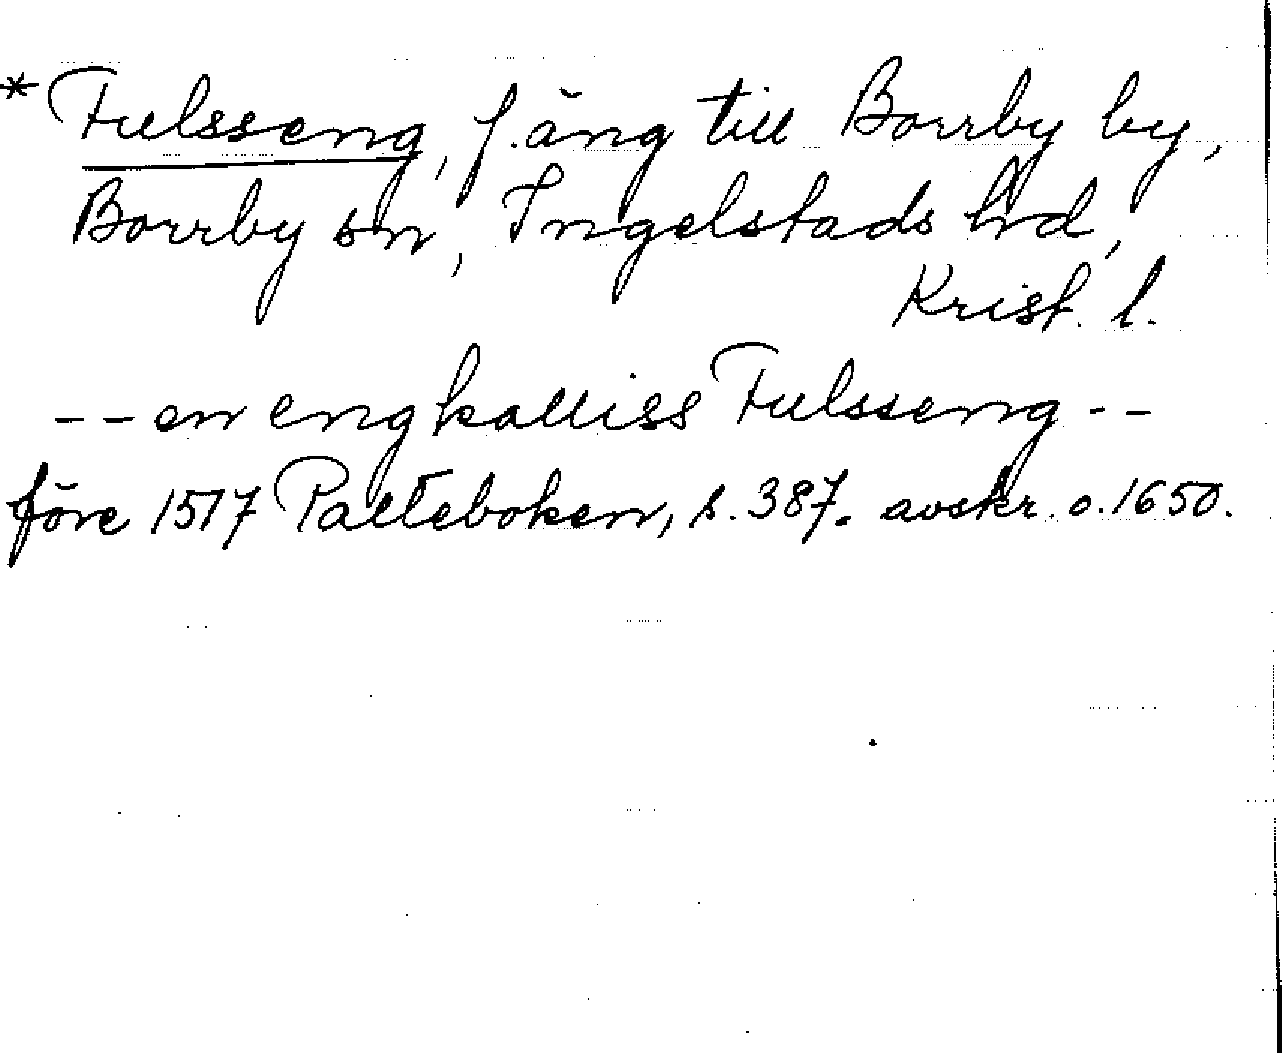 * Fulsseng, f. äng till Borrby by,
Borrby sn, Ingelstads hd,
Krist. l.
-- en eng kalliss Fulsseng --
före 1517 Palteboken, s. 387. avskr. o. 1650.